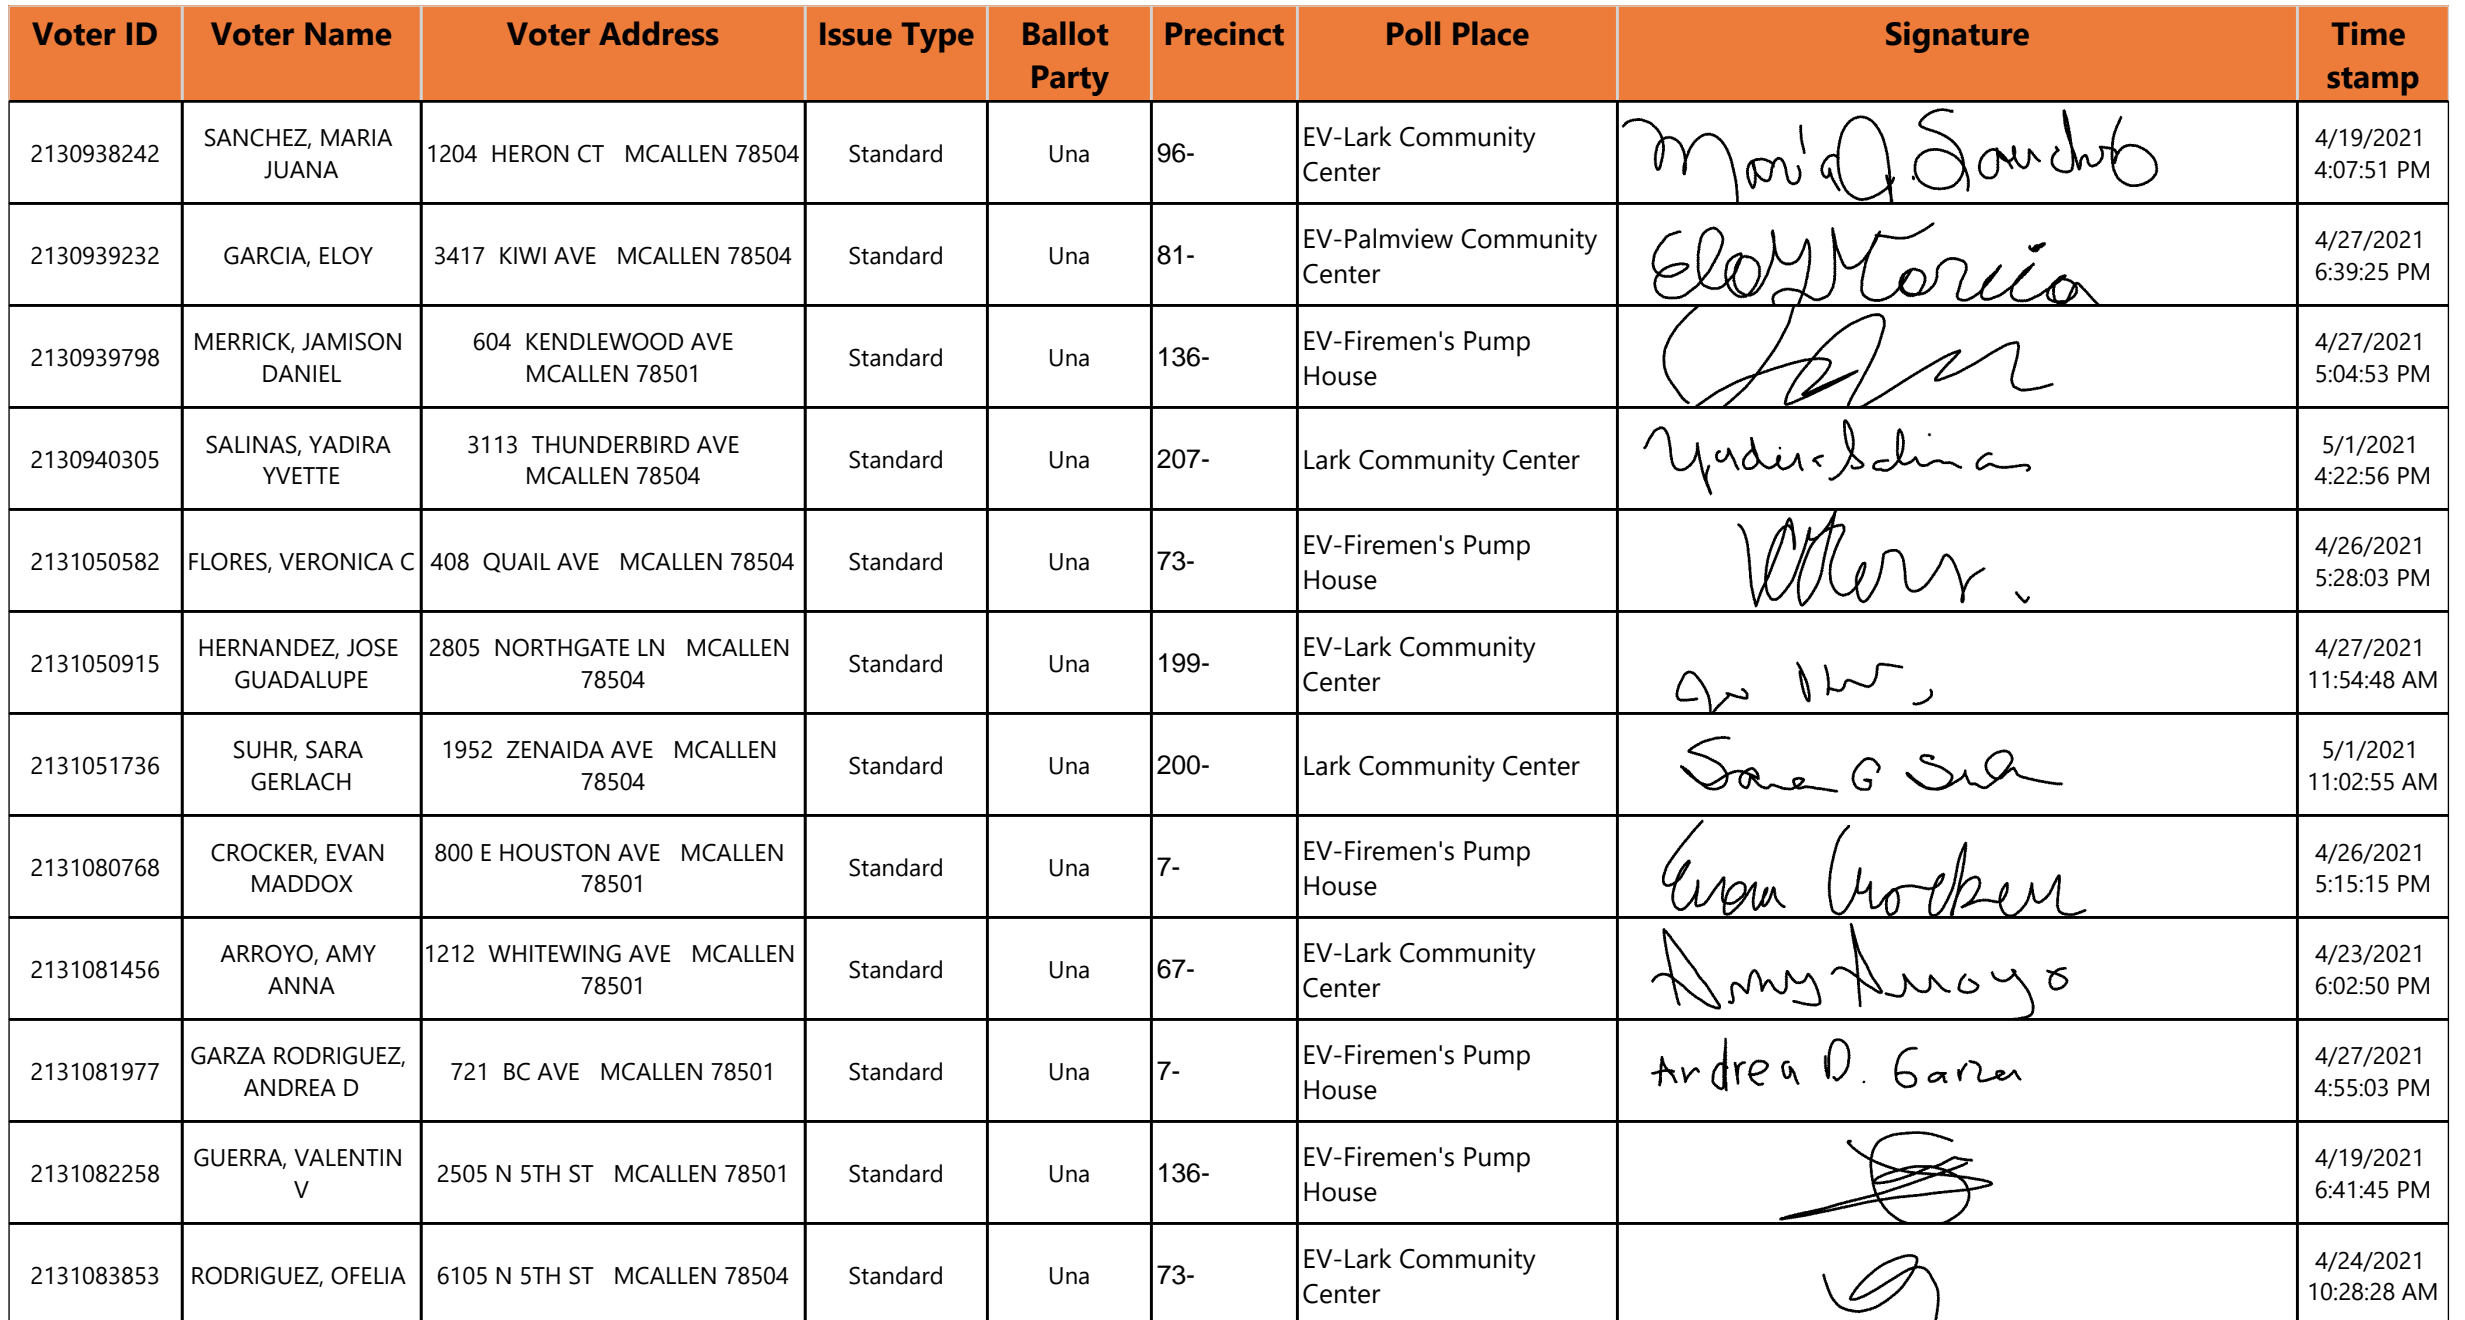 Voter ID Voter Name Voter Address Issue Type Ballot Party Precinct Poll Place Signature Time stamp
2130938242 SANCHEZ, MARIA JUANA 1204 HERON CT MCALLEN 78504 Standard Una 96- EV-Lark Community Center Maria J. Sanchez 4/19/2021 4:07:51 PM
2130939232 GARCIA, ELOY 3417 KIWI AVE MCALLEN 78504 Standard Una 81- EV-Palmview Community Center Eloy Garcia 4/27/2021 6:39:25 PM
2130939798 MERRICK, JAMISON DANIEL 604 KENDLEWOOD AVE MCALLEN 78501 Standard Una 136- EV-Firemen's Pump House 4/27/2021 5:04:53 PM
2130940305 SALINAS, YADIRA YVETTE 3113 THUNDERBIRD AVE MCALLEN 78504 Standard Una 207- Lark Community Center Yadira Salinas 5/1/2021 4:22:56 PM
2131050582 FLORES, VERONICA C 408 QUAIL AVE MCALLEN 78504 Standard Una 73- EV-Firemen's Pump House 4/26/2021 5:28:03 PM
2131050915 HERNANDEZ, JOSE GUADALUPE 2805 NORTHGATE LN MCALLEN 78504 Standard Una 199- EV-Lark Community Center 4/27/2021 11:54:48 AM
2131051736 SUHR, SARA GERLACH 1952 ZENAIDA AVE MCALLEN 78504 Standard Una 200- Lark Community Center Sara G Suhr 5/1/2021 11:02:55 AM
2131080768 CROCKER, EVAN MADDOX 800 E HOUSTON AVE MCALLEN 78501 Standard Una 7- EV-Firemen's Pump House Evan Crocker 4/26/2021 5:15:15 PM
2131081456 ARROYO, AMY ANNA 1212 WHITEWING AVE MCALLEN 78501 Standard Una 67- EV-Lark Community Center Amy Arroyo 4/23/2021 6:02:50 PM
2131081977 GARZA RODRIGUEZ, ANDREA D 721 BC AVE MCALLEN 78501 Standard Una 7- EV-Firemen's Pump House Andrea D. Garza 4/27/2021 4:55:03 PM
2131082258 GUERRA, VALENTIN V 2505 N 5TH ST MCALLEN 78501 Standard Una 136- EV-Firemen's Pump House 4/19/2021 6:41:45 PM
2131083853 RODRIGUEZ, OFELIA 6105 N 5TH ST MCALLEN 78504 Standard Una 73- EV-Lark Community Center 4/24/2021 10:28:28 AM